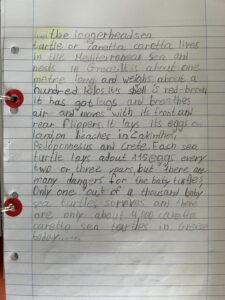 the loggerhead sea
turtle or caretta caretta lives
in the Mediterranean sea and
nests in Greece. It is about one
metre long and weighs about a
hundred kilos. It's shell is red-brown
it has got lugs and breathes
air and moves with its front and
rear flippers. It lays its eggs on
sandy beaches in Zakinthos,
Peloponnesus and Crete. Each sea
turtle lays adout 115 eggs every
two or three years, but there are
many dangers for the baby turtles,
Only one out of a thousand baby
sea turtles survives and there
are only about 4,000 caretta
caretta sea turtles in Greece
today......